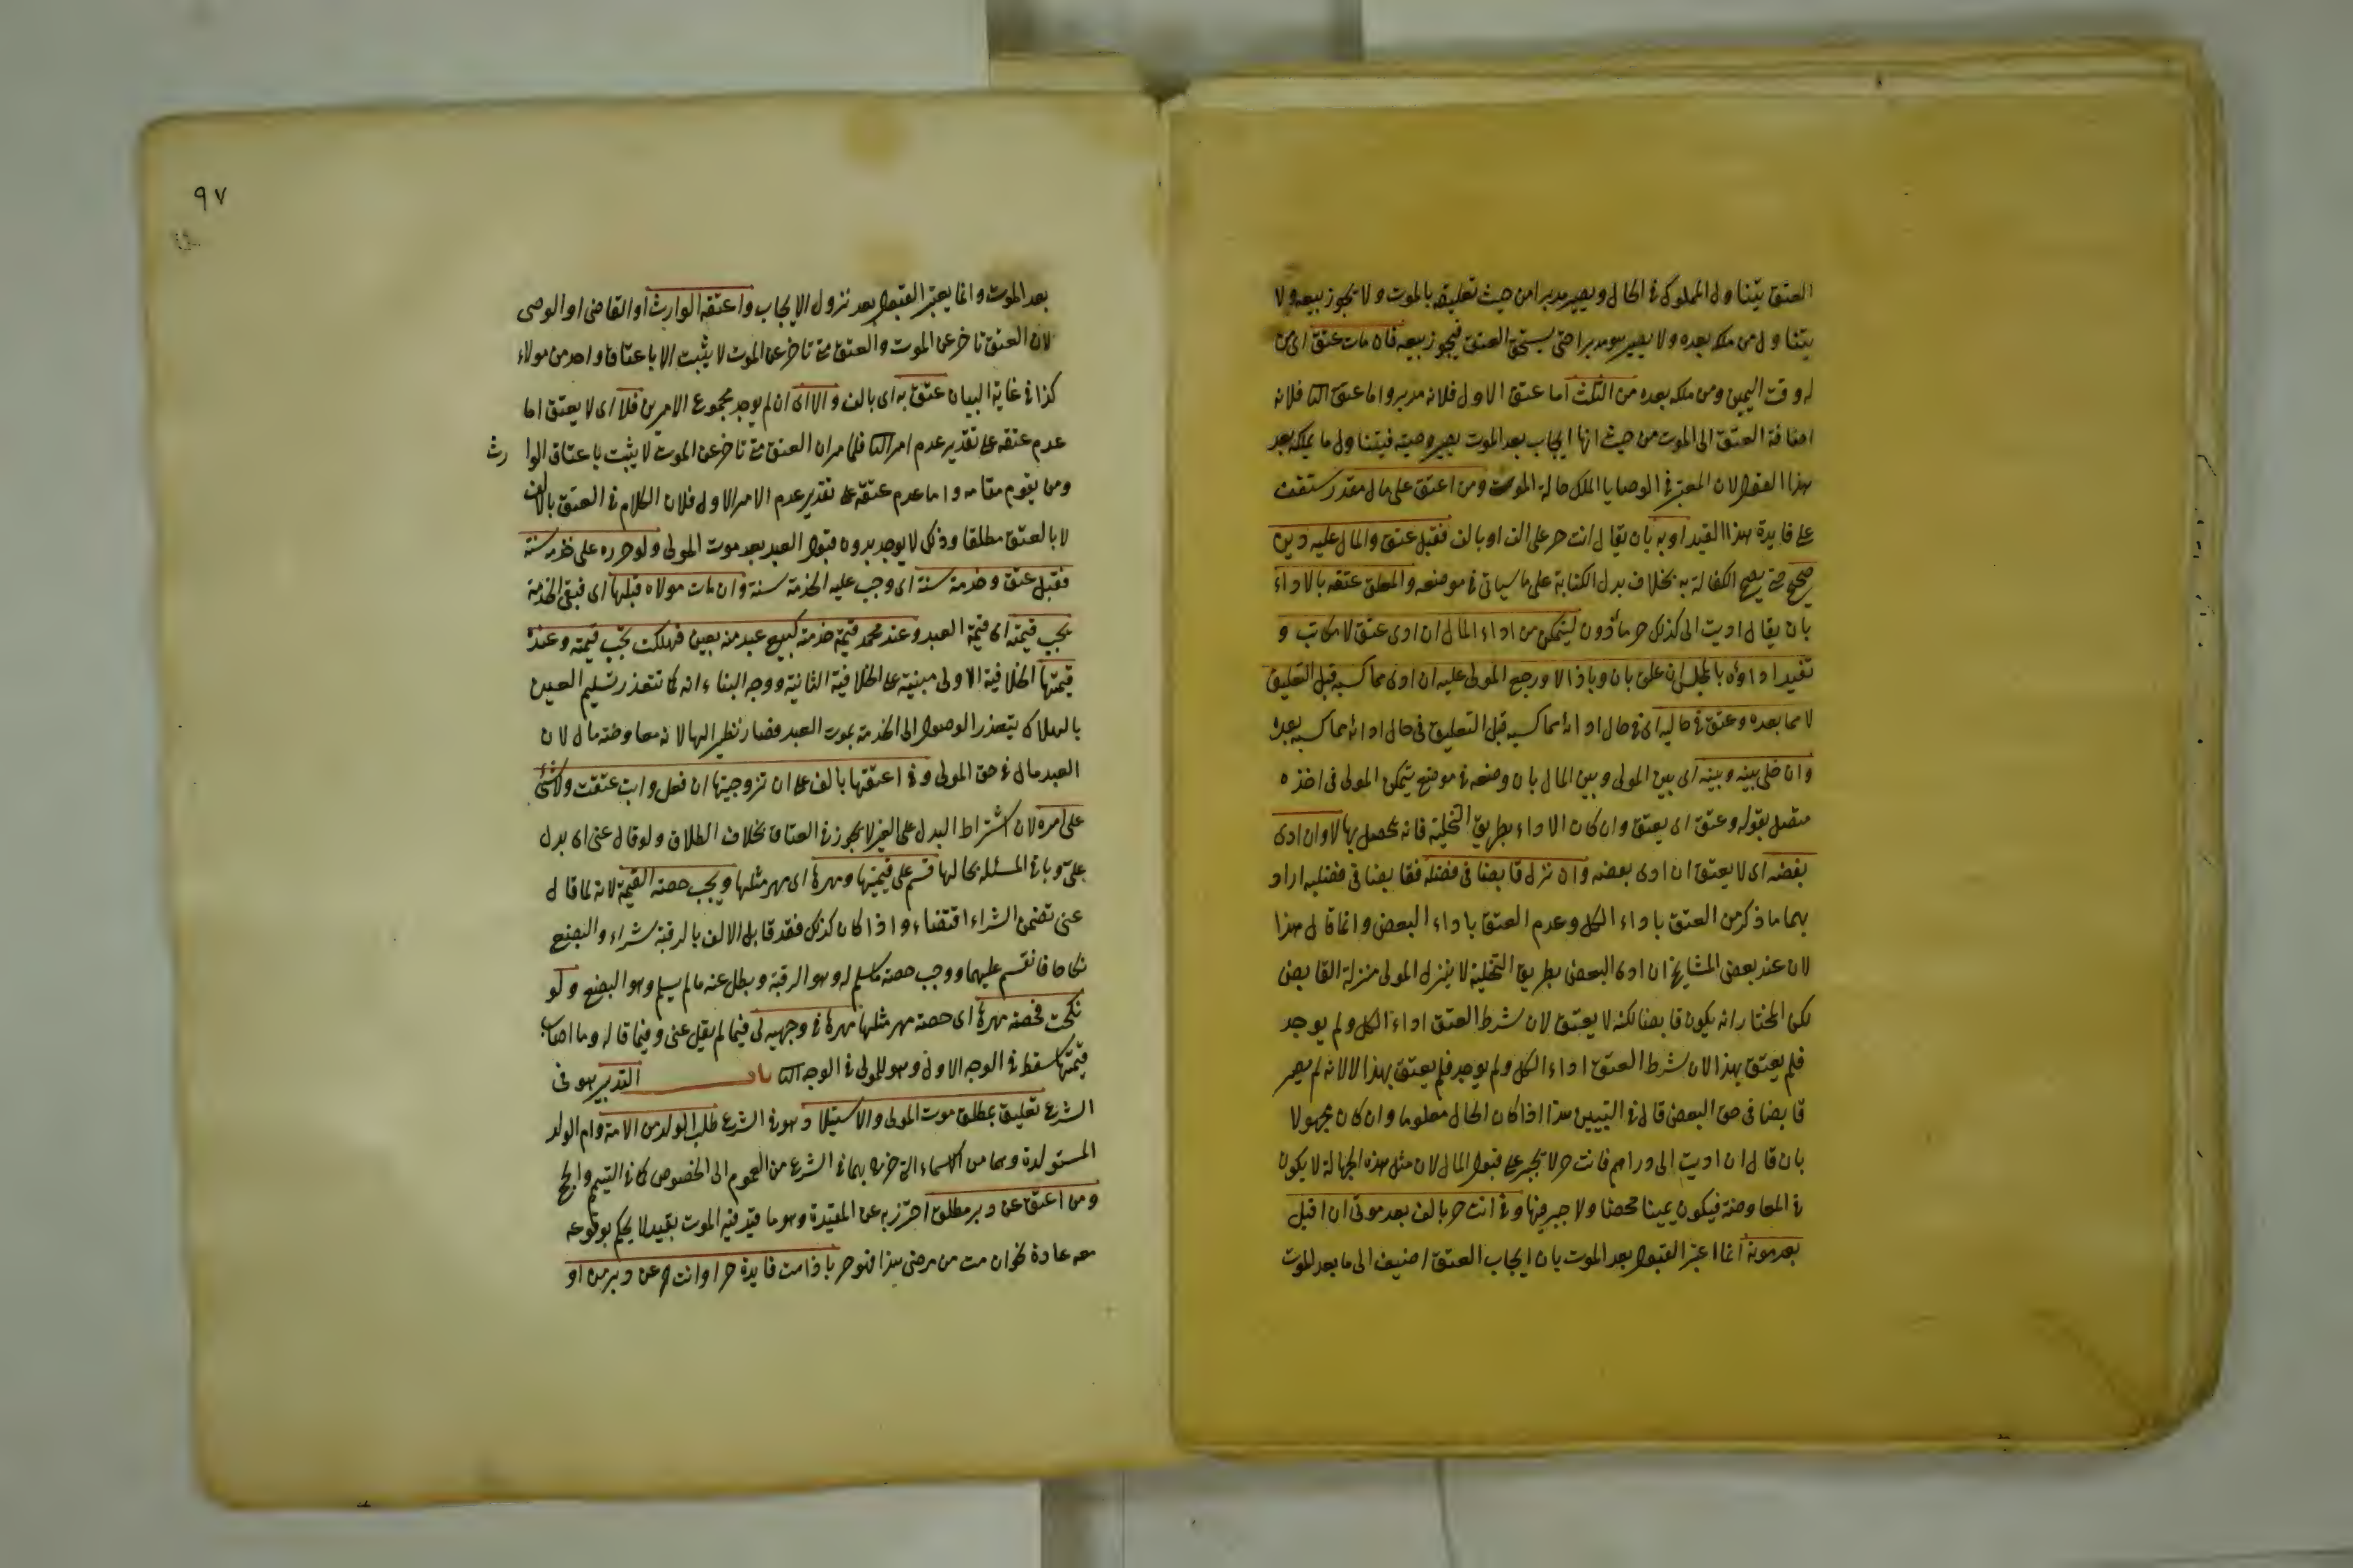 العتق يتناول المملوك في الحال ويصير مدبرا من حيث تعليقه بالموت ولا يجوز بيعه ولا
يتناول من ملكه بعده ولا يصير هو مدبرا حتى يستحق العتق فيجوز بيعه فان مات عتق اى من
له وقت اليمين ومن ملكه بعده من الثلث اما عتق الاول فلانه مدبر واما عتق الثا فلانه
اضافة العتق الى الموت من حيث انها ايجاب بعد الموت يصير وصيته فيتناول ما يملكه بعد
هذا القول لان المعتبر في الوصايا الملك حالة الموت ومن اعتق على مال
على فايدة هذا القيد او به بان يقال انت حر على الف او بالف فقبل عتق والمال عليه دين
صحيح حتى يصح الكفالة به بخلاف بدل الكتابة على ما سياتى فى موضعه والمعلق عتقه بالاداء
بان يقال ان اديت الى كذلك حر مأذون ليتمكن من اداء المال ان ادى عتق لا مكاتب و
تقيد اداؤه بالمجلس ان علق بان وباذا لا ورجع المولى عليه ان ادى مما كسبه قبل التعليق
لا مما بعده وعتق في حاليه اى في حال ادائه مما كسبه قبل التعليق فى حال ادائه مما كسبه بعده
وان خلى بينه وبينه اى بين المولى وبين المال بان وضعه في موضع يتمكن المولى فى اخذه
متصل بقوله وعتق اى يعتق وان كان الاداء بطريق التخلية فانه يحصل بها لا وان ادى
بعضه اى لا يعتق ان ادى بعضه وان نزل قابضا فى فصله فقابضا فى فصليه اراد
بهما ما ذكر من العتق باداء الكل وعدم العتق باداء البعض وانما قال هذا
لان عند بعض المشايخ ان ادى البعض بطريق التخلية لا ينزل المولى منزلة القابض
لكن المختار انه يكون قابضا لكنه لا يعتق لان شرط العتق اداء الكل ولم يوجد
فلم يعتق بهذا لان شرط العتق اداء الكل ولم يوجد فلم يعتق بهذا لا لانه لم يصر
قابضا فى حق البعض قال في التبيين هذا اذا كان الحال معلوما وان كان مجهولا
بان قال ان اديت الى دراهم فانت حر لا يجبر على قبول المال لان مثل هذه الجهالة لا يكون
في المعاوضة فيكون يمينا محضا ولا جبر فيها وفي انت حر بالف بعد موتى ان قبل
بعد موته انما اعتبر القبول بعد الموت بان ايجاب العتق اضيف الى ما بعد الموت
٩٧
بعد الموت وانما يعتبر القبول بعد نزول الايجاب واعتقه الوارث او القاضى او الوصى
لان العتق تاخر عن الموت والعتق متى تاخر عن الموت لا يثبت الا باعتاق واحد من هولاء
كذا في غاية البيان عتق به اى بالف والا اى ان لم يوجد مجموع الامرين فلا اى لا يعتق اما
عدم عتقه على تقدير عدم امر الثا فلما مر ان العتق متى تاخر عن الموت لا يثبت باعتاق الوارث
ومن يقوم مقامه واما عدم عتقه على تقدير عدم الامر الاول فلان الكلام في العتق بالالف
لا بالعتق مطلقا وذلك لا يوجد بدون قبول العبد بعد موت المولى ولو حرره على خدمة سنة
فقبل عتق وخدمة سنة اى وجب عليه الخدمة سنة وان مات مولاه قبلها اى قبل الخدمة
يجب قيمته اى قيمة العبد وعند محمد قيمة خدمته كبيع عبد منه بعين فهلكت تجب قيمته وعنده
قيمتها الخلافية الاولى مبنية على الخلافية الثانية ووجه البناء انه كما تتعذر تسليم العين
بالهلاك يتعذر الوصول الى الخدمة بموت العبد فصار نظيرا لها لانه معاوضة مال لان
العبد مال في حق المولى وفي اعتقتها بالف على ان تزوجنيها ان فعل وابت عتقت ولا شئ
على امره لان اشتراط البدل على الغير لا يجوز في العتاق بخلاف الطلاق ولو قال عنى اى بدل
على وباقى المسئلة بحالها قسم على قيمتها ومهرها اى مهر مثلها ويجب حصة القيمة لانه لما قال
عنى تضمن الشراء اقتضاء واذا كان كذلك فقد قابل الالف بالرقبة شراء والبضع
نكاحا فانقسم عليهما ووجب حصة ما سلم له وهو الرقبة وبطل عنه ما لم يسلم وهو البضع ولو
نكحت فحصة مهرها اى حصة مهر مثلها مهرها في وجهيه اى فيما لم يقل عنى وفيما قاله وما اصاب
قيمتها سقط في الوجه الاول وهو للمولى في الوجه الثا باب التدبير هو فى
الشرع تعليق بمطلق موت المولى والاستيلاد هو في الشرع طلب الولد من الامة وام الولد
المستولدة وهما من الاسماء التى خرج بهما في الشرع من العموم الى الخصوص كما في التيمم والحج
ومن اعتق عن دبر مطلق احترز به عن المقيدة وهو ما قيد فيه الموت بقيد لا يحكم بوقوعه
معه عادة نحو ان مت من مرضى هذا فهو حر باذا مت فايدة حر او انت حر عن دبر من او